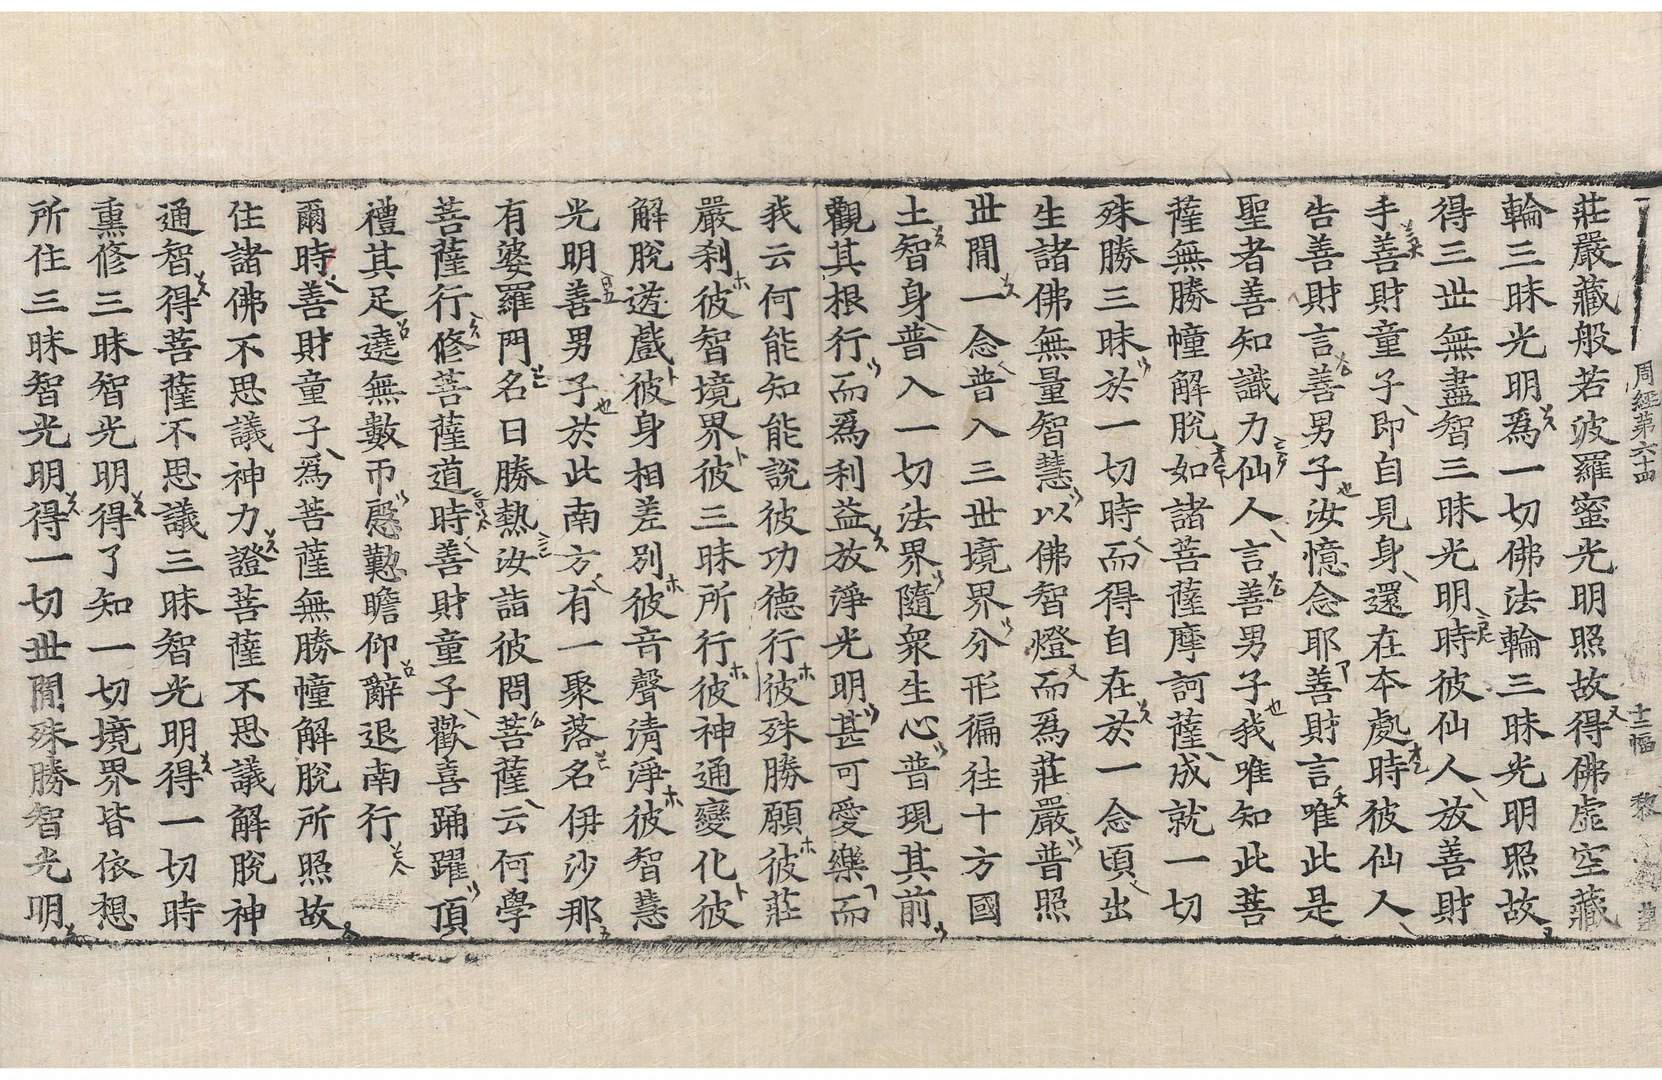 周經第六十四 十二幅 黎
莊嚴藏般若波羅蜜光明照故得佛虛空藏
輪三昧光明爲一切佛法輪三昧光明照故
得三世無盡智三昧光明時彼仙人放善財
手善財童子即自見身還在本處時彼仙人
告善財言善男子汝憶念耶善財言唯此是
聖者善知識力仙人言善男子我唯知此菩
薩無勝幢解脫如諸菩薩摩訶薩成就一切
殊勝三昧於一切時而得自在於一念頃出
生諸佛無量智慧以佛智燈而爲莊嚴普照
世間一念普入三世境界分形徧往十方國
土智身普入一切法界隨衆生心普現其前
觀其根行而爲利益放淨光明甚可愛樂而
我云何能知能說彼功德行彼殊勝願彼莊
嚴刹彼智境界彼三昧所行彼神通變化彼
解脫遊戲彼身相差別彼音聲清淨彼智慧
光明善男子於此南方有一聚落名伊沙那
有婆羅門名曰勝熱汝詣彼問菩薩云何學
菩薩行修菩薩道時善財童子歡喜踊躍頂
禮其足遶無數帀慇懃瞻仰辭退南行
爾時善財童子爲菩薩無勝幢解脫所照故
住諸佛不思議神力證菩薩不思議解脫神
通智得菩薩不思議三昧智光明得一切時
熏修三昧智光明得了知一切境界皆依想
所住三昧智光明得一切世間殊勝智光明